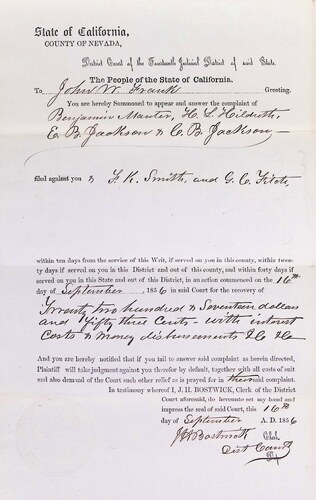 State of California,
COUNTY OF NEVADA,
District Court of the Fourteenth Judicial District of said State.
The People of the State of California.
To John W. Frank Greeting.
You are hereby Summoned to appear and answer the complaint of
Benjamin H. L. Hildreth,
E. B. Jackson & C. B. Jackson
filed against you & F. K. Smith, and G. C.
within ten days from the service of this Writ, if served on you in this county, within twen-
ty days if served on you in this District and out of this county, and within forty days if
served on you in this State and out of this District, in an action commenced on the 16th
day of September, 1856 in said Court for the recovery of
Twenty two hundred & Seventeen dollars
and Fifty three Cents - with interest
costs & money disbursements &c &c
And you are hereby notified that if you fail to answer said complaint as herein directed,
Plaintiff will take judgment against you therefor by default, together with all costs of suit
and also demand of the Court such other relief as is prayed for in their said complaint.
In testimony whereof I, J. H. BOSTWICK, Clerk of the District
Court aforesaid, do hereunto set my hand and
impress the seal of said Court, this 16th
day of September A. D. 1856
J H Bostwick Clk.
Dist Court